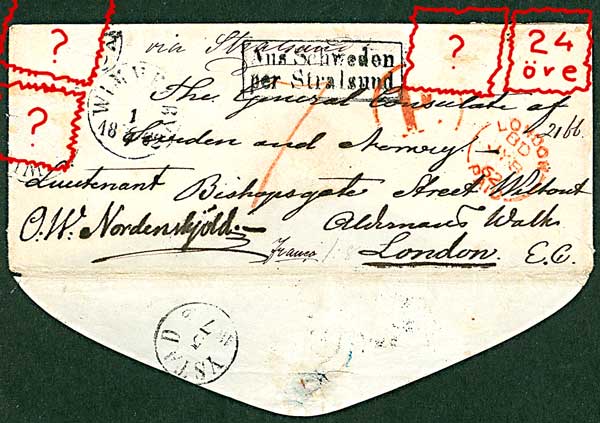 ?
?
?
24
öre
via Stralsund
Aus Schweden
per Stralsund
WIMMERBY
1
18
P.
The General Consulate of
Sweden and Norway
Lieutenant Bishopsgate Street Without
O.W. Nordenskjöld.— Aldermans Walk
(Franco) London. E.C.
LONDON
62
PAID
YSTAD